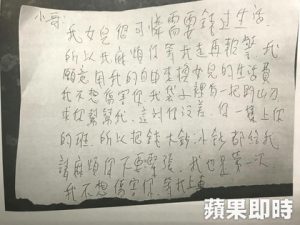 小哥:
我女兒很可憐需要錢過生活
所以我麻煩你等我走再報警 我
願意用我的自由來換女兒的生活費
我不想傷害你 我袋裡有一把開山刀
求你幫幫我 這到你沒差 你一樣上你
的班 所以把錢大鈔、小鈔都給我
請麻煩你不要緊張 我也是第一次
我不想傷害你 等我上車
蘋果即時